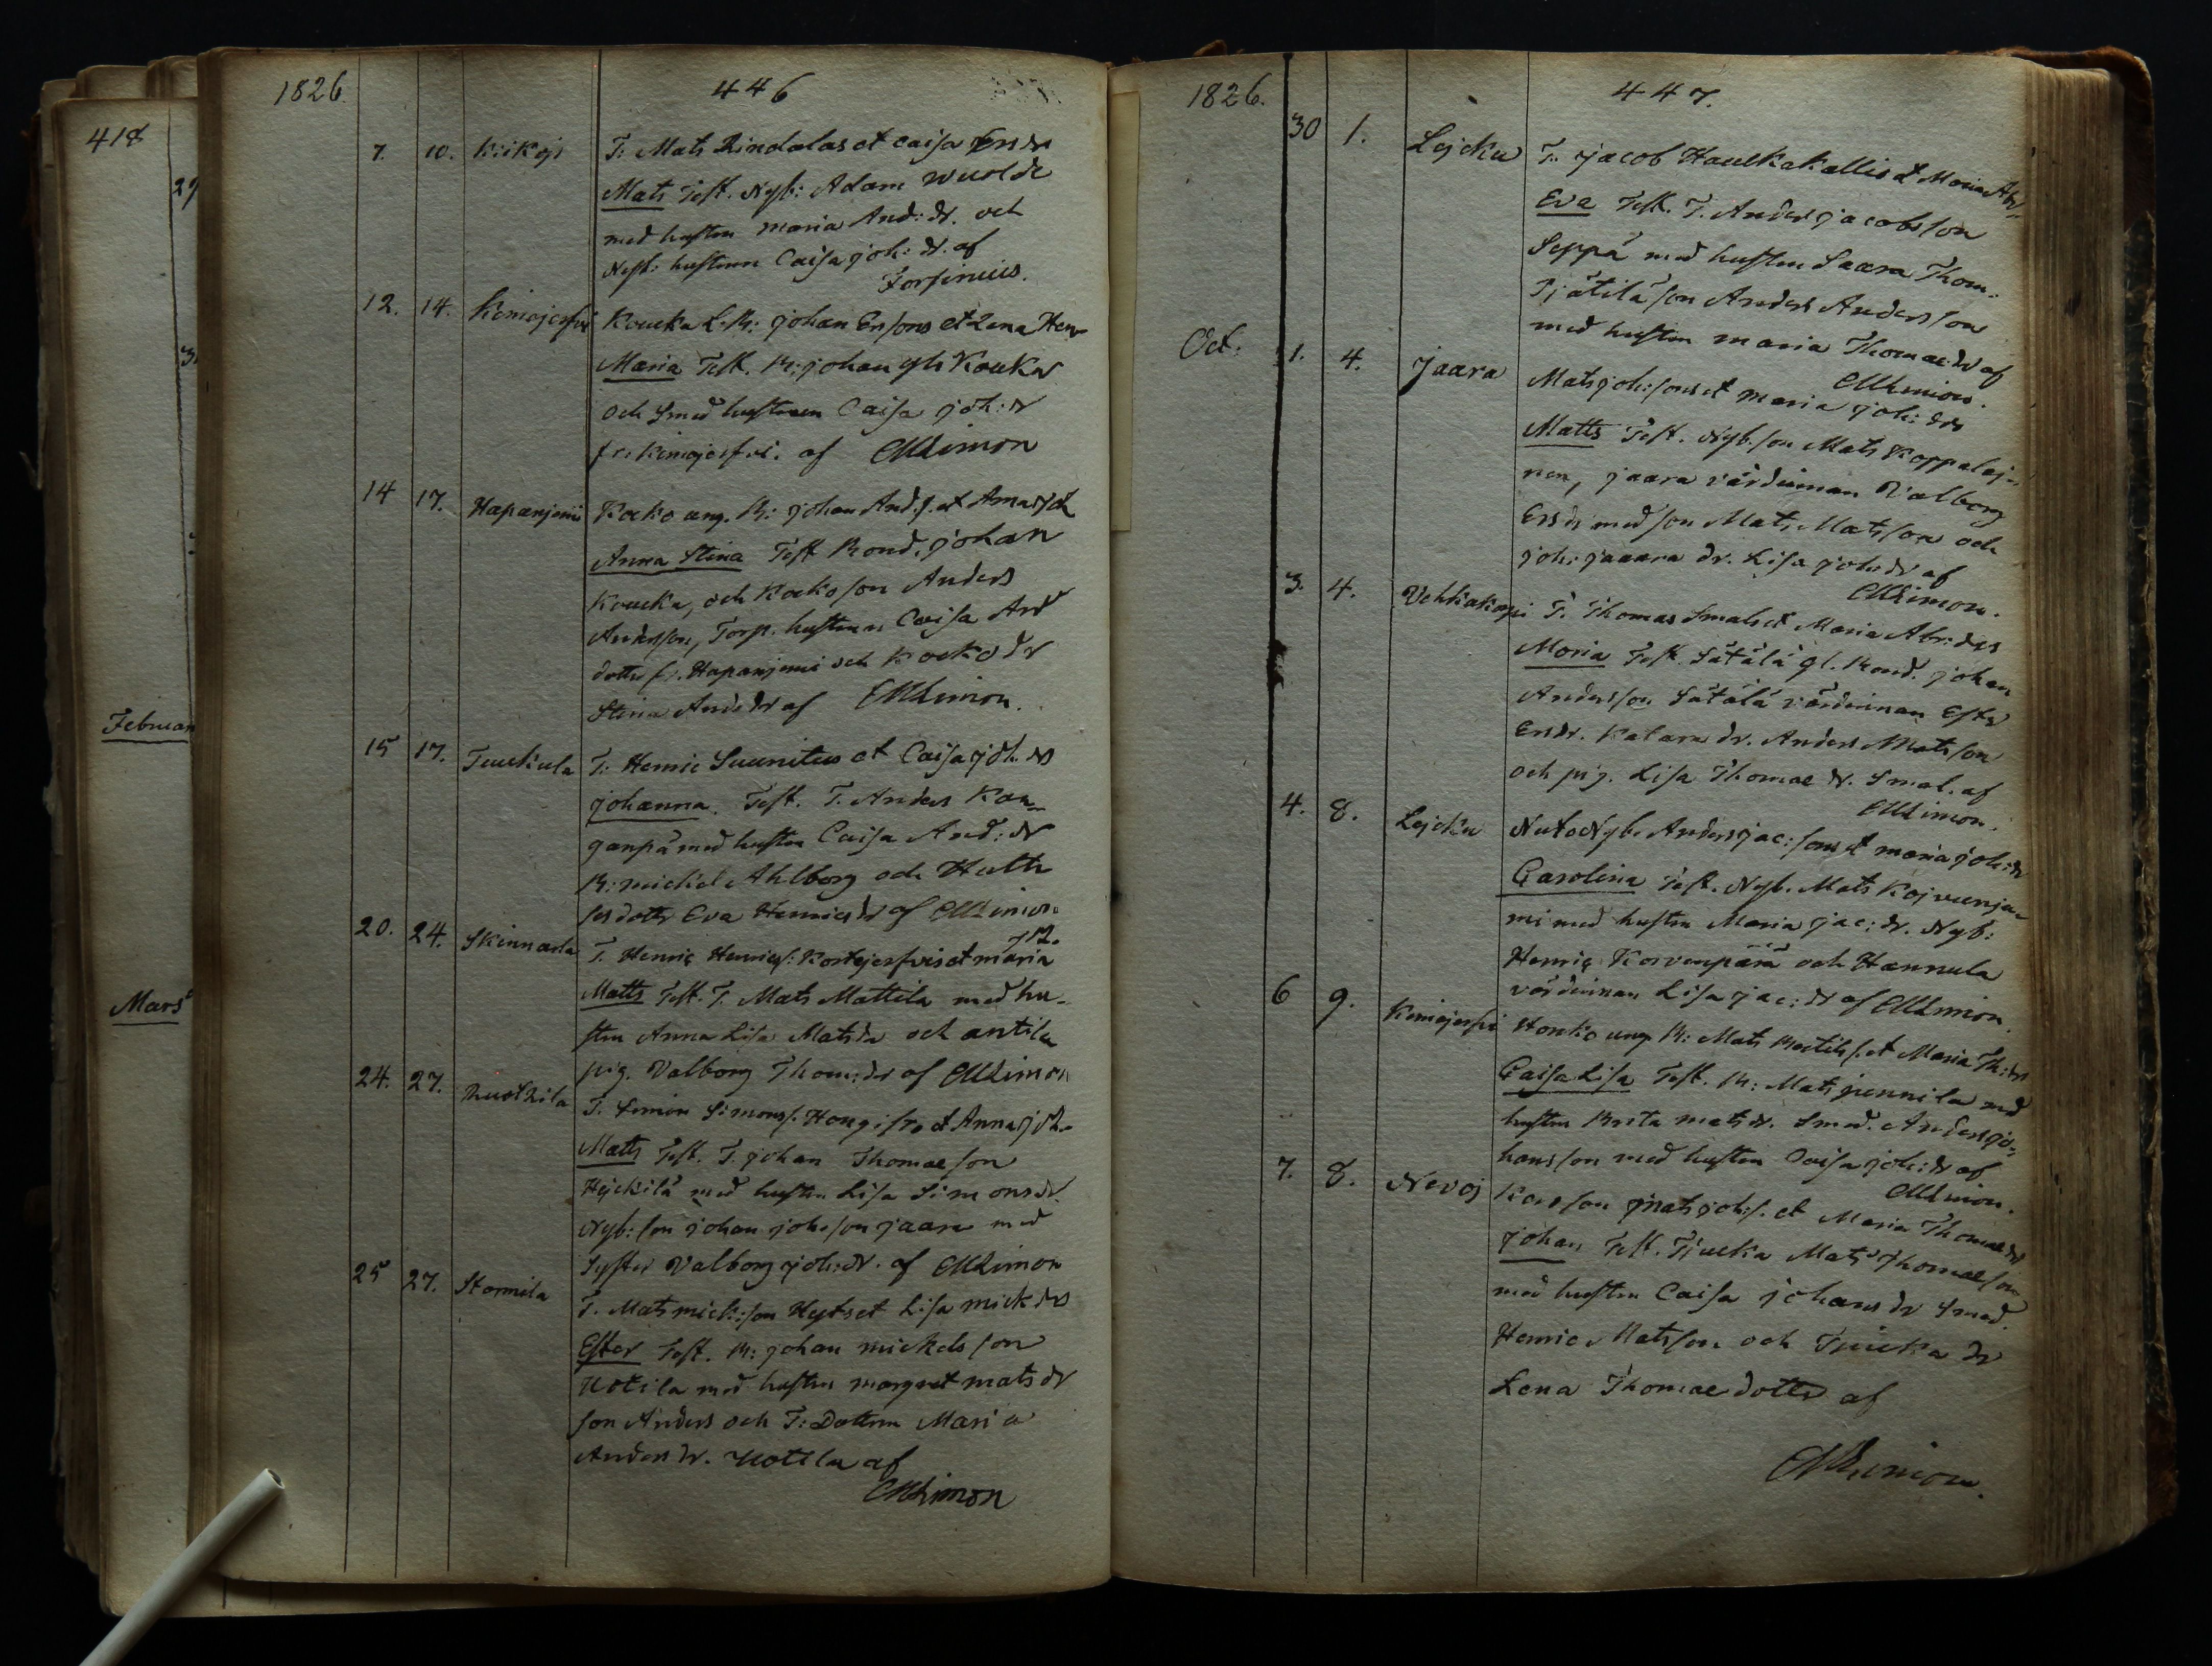 418
29
3
Februar
Mars
1826.
446
7. 10. Kiikoj T: Mats Rindalas et Caisa Ersdr
Mats Test. Nyb: Adam Wuolde
med hustru Maria And: dr. och
Nyb: hustrun Caisa joh: dr. af
Forsinius.
12. 14. Kimojerfvi Koucka L. B: johan Ersons et Lena Hen
Maria Test. B: johan gls Koucka
och Smed hustrun Caisa joh: dr
fr: Kimojerfvi. af CMLimon
14 17. Hapanjemi Kocko ung. B: johan And: s. et Anna joh
Anna Stina Test Bond. johan
Koucka, och Kocko son Anders
Andersson, Torp. hustrun Caisa And
dotter fr. Hapanjemi och Kocko dr
Stina And: dr af CMLimon.
15 17. Tuckula T. Henric Suunitus et Caisa joh. drs
johanna. Test. T. Anders Kan-
ganpä med hustru Caisa And: dr
B: mickel Ahlborg och Hutti
ses dotter Eva Henrics dr af CMLimon
20. 24. Skinnarla T. Henric Henrics: Kortejerfvis et maria
Matts Test. T. Mats Mattila med hu-
stru Anna Lisa Matsdr och antila
pig. Valborg Thom: dr af CMLimon
24. 27. T. Simon Simons. Hongisto et Anna joh.
Matts Test. T. johan Thomae son
Hejckilä med hustru Lisa Simonsdr.
Nyb: son johan joh: son jaara med
Syster Valborg joh: dr. af CMLimon
25 27. Stormila T. Mats mick: son Hyts et Lisa mick drs
Ester Test. B: johan mickelsson
Uotila med hustru margret mats dr
son Anders och T: Dottren Maria
Anders dr. Uotila af
CMLimon
1826.
447.
30 1. Lejcku T. jacob Hauckakallis et Maria Abr
Eva Test. T. Anders jacobsson
Seppä med hustru Saara Thom.
Pjätilä son Anders Andersson
med hustru maria Thomae dr af
CMLimon.
Oct: 1. 4. jaara Mats joh: sons et maria joh: drs
Matts Test. Nyb. son Mats Koppelaj-
nen, jaara värdinnan Valborg
Ersdr med son Mats Matsson och
joh: jaaara dr. Lisa joh: dr af
CMLimon.
3. 4. Vehkakorpi T. Thomas Smals et Maria Abr: drs
Maria Test. Sätälä gl. Bond. johan
Andersson Sätälä värdinnan Ester
Ersdr. Katara dr. Anders Matsson
och pig. Lisa Thomae dr. Smal. af
CMLimon.
4. 8. Lejcku Nuto Nyb. Anders jac: sons et maria joh: dr
Carolina Test. Nyb. Mats Kojvunje-
mi med hustru Maria jac: dr. Nyb:
Henric Korvenpää och Hannula
värdinnan Lisa jac: dr af CMLimon.
6 9. Kimojerfvi Honko ung B: Mats s. et Maria Th: drs
Caisa Lisa Test. B: Mats junnila med
hustru Brita mats dr. Smed. Anders jo-
hansson med hustru Caisa joh: dr af
CMLimon.
7. 8. Nevoj son Mats joh: s. et Maria Thomae dr
johan Test. Tjucka Mats Thomae son
med hustru Caisa johans dr Smed.
Henric Matsson och Tjucka dr
Lena Thomae dotter af
CMLimon.